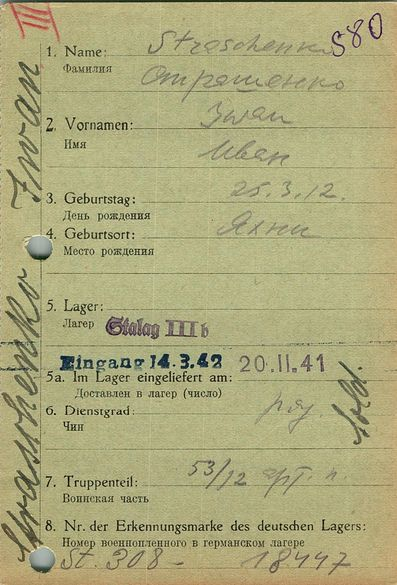 III
S80
1. Name: Straschenko
Фамилия
Страшенко
2. Vornamen: Iwan
Имя
Иван
3. Geburtstag: 25.3.12.
День рождения
4. Geburtsort: Яхни
Место рождения
5. Lager:
Лагер Stalag III b
Eingang 14.3.42 20.11.41
5a. Im Lager eingeliefert am:
Доставлен в лагер (число)
6. Dienstgrad:
Чин
Sold.
7. Truppenteil: 53/12 арт. п.
Воинская часть
8. Nr. der Erkennungsmarke des deutschen Lagers:
Номер военнопленного в германском лагере
St. 308 - 18447
Straschenko Iwan